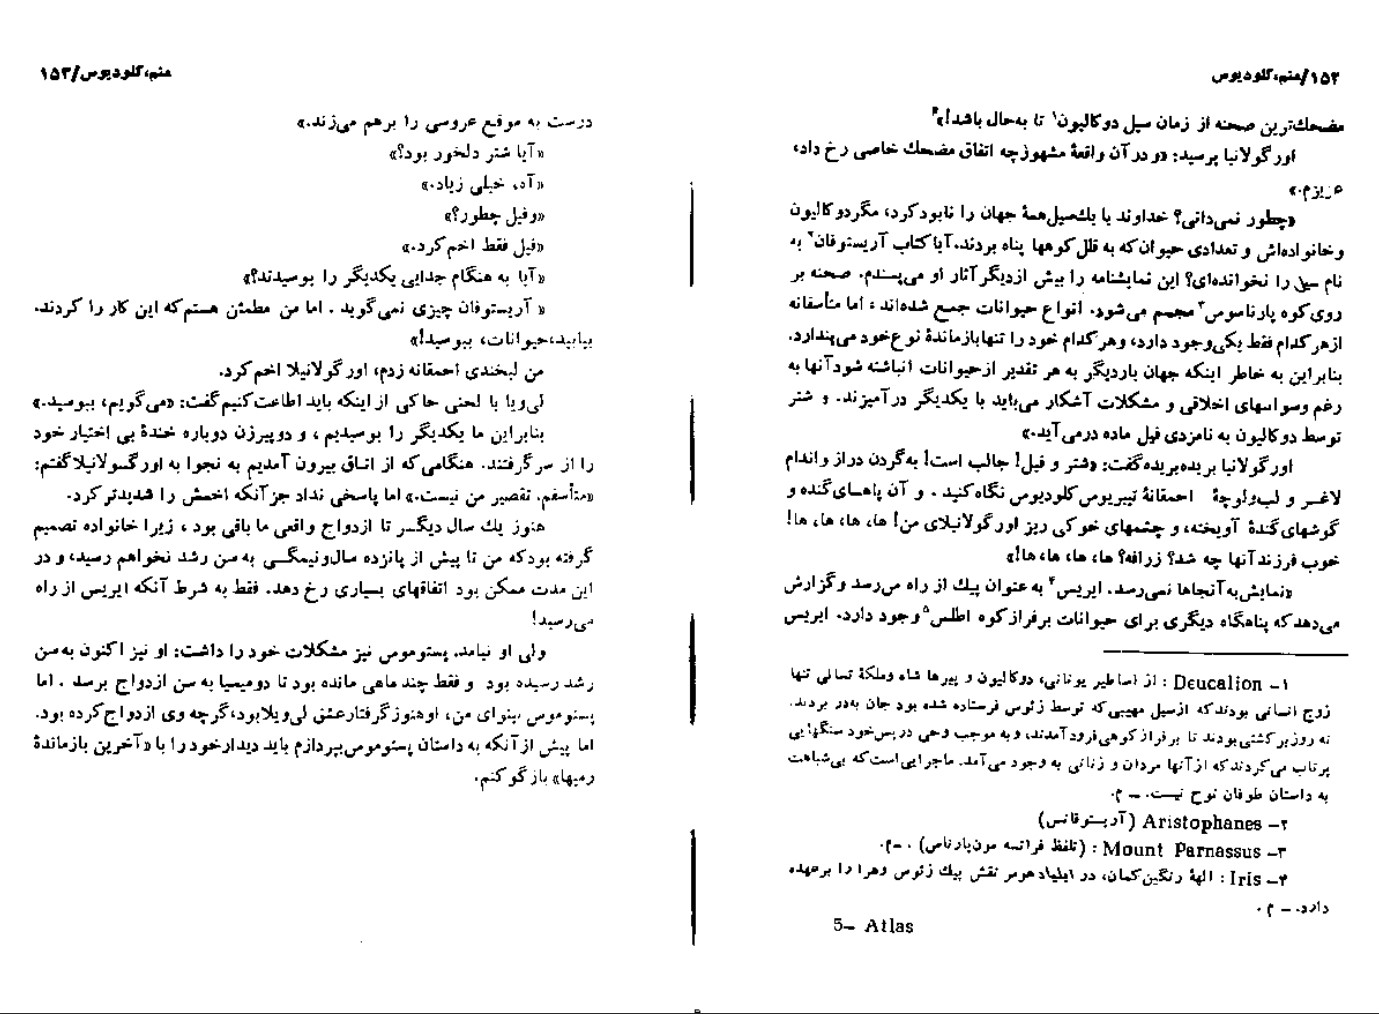 ۱۵۲/منم، کلودیوس
مضحك‌ترین صحنه از زمان سیل دوکالیون۱ تا به‌حال باشد!»
اورگولانیا پرسید: «و در آن واقعهٔ مشهور چه اتفاق مضحك خاصی رخ داد،
عزیزم.»
«چطور نمی‌دانی؟ خداوند با یك سیل همهٔ جهان را نابود کرد، مگر دوکالیون
و خانواده‌اش و تعدادی حیوان که به قلل کوهها پناه بردند. آیا کتاب آریستوفان۲ به
نام سیل را نخوانده‌ای؟ این نمایشنامه را بیش از دیگر آثار او می‌پسندم. صحنه بر
روی کوه پارناسوس۳ مجسم می‌شود. انواع حیوانات جمع شده‌اند، اما متأسفانه
از هر کدام فقط یکی وجود دارد، و هر کدام خود را تنها بازماندهٔ نوع خود می‌پندارد.
بنابراین به خاطر اینکه جهان بار دیگر به هر تقدیر از حیوانات انباشته شود آنها به
رغم وسواسهای اخلاقی و مشکلات آشکار می‌باید با یکدیگر درآمیزند. و شتر
توسط دوکالیون به نامزدی فیل ماده درمی‌آید.»
اورگولانیا بریده بریده گفت: «شتر و فیل! جالب است! به گردن دراز و اندام
لاغر و لب‌ولوچهٔ احمقانهٔ تیبریوس کلودیوس نگاه کنید. و آن پاهای گنده و
گوشهای گندهٔ آویخته، و چشمهای خوکی ریز اورگولانیلای من! ها، ها، ها، ها!
خوب فرزند آنها چه شد؟ زرافه؟ ها، ها، ها، ها!»
«نمایش به آنجاها نمی‌رسد. ایریس۴ به عنوان پیك از راه می‌رسد و گزارش
می‌دهد که پناهگاه دیگری برای حیوانات بر فراز کوه اطلس۵ وجود دارد. ایریس
۱- Deucalion : از اساطیر یونانی، دوکالیون و پیرها شاه وملکهٔ تسالی تنها
زوج انسانی بودند که از سیل مهیبی که توسط زئوس فرستاده شده بود جان به‌در بردند.
نه روز بر کشتی بودند تا بر فراز کوهی فرود آمدند، و به موجب وحی در پس خود سنگهایی
پرتاب می‌کردند که از آنها مردان و زنانی به وجود می‌آمد. ماجرایی است که بی‌شباهت
به داستان طوفان نوح نیست. ـ م.
۲- Aristophanes (آریستوفانس)
۳- Mount Parnassus : (تلفظ فرانسه مون‌پارناس) . ـم.
۴- Iris : الههٔ رنگین‌کمان، در ایلیاد هومر نقش پیك زئوس و هرا را برعهده
دارد. ـ م .
5- Atlas
منم، کلودیوس/۱۵۳
درست به موقع عروسی را برهم می‌زند.»
«آیا شتر دلخور بود؟»
«آه، خیلی زیاد.»
«وفیل چطور؟»
«فیل فقط اخم کرد.»
«آیا به هنگام جدایی یکدیگر را بوسیدند؟»
« آریستوفان چیزی نمی‌گوید . اما من مطمئن هستم که این کار را کردند.
بیایید، حیوانات، ببوسید!»
من لبخندی احمقانه زدم، اورگولانیلا اخم کرد.
لی‌ویا با لحنی حاکی از اینکه باید اطاعت کنیم گفت: «می‌گویم، ببوسید.»
بنابراین ما یکدیگر را بوسیدیم ، و دو پیرزن دوباره خندهٔ بی اختیار خود
را از سر گرفتند. هنگامی که از اتاق بیرون آمدیم به نجوا به اورگولانیلا گفتم:
«متأسفم. تقصیر من نیست.» اما پاسخی نداد جز آنکه اخمش را شدیدتر کرد.
هنوز یك سال دیگر تا ازدواج واقعی ما باقی بود ، زیرا خانواده تصمیم
گرفته بود که من تا پیش از پانزده سال‌ونیمگی به سن رشد نخواهم رسید، و در
این مدت ممکن بود اتفاقهای بسیاری رخ دهد. فقط به شرط آنکه ایریس از راه
می‌رسید!
ولی او نیامد. پستوموس نیز مشکلات خود را داشت: او نیز اکنون به سن
رشد رسیده بود و فقط چند ماهی مانده بود تا دومیسیا به سن ازدواج برسد . اما
پستوموس بینوای من، او هنوز گرفتار عشق لی‌ویلا بود، گرچه وی ازدواج کرده بود.
اما پیش از آنکه به داستان پستوموس بپردازم باید دیدار خود را با «آخرین بازماندهٔ
رمیها» بازگو کنم.